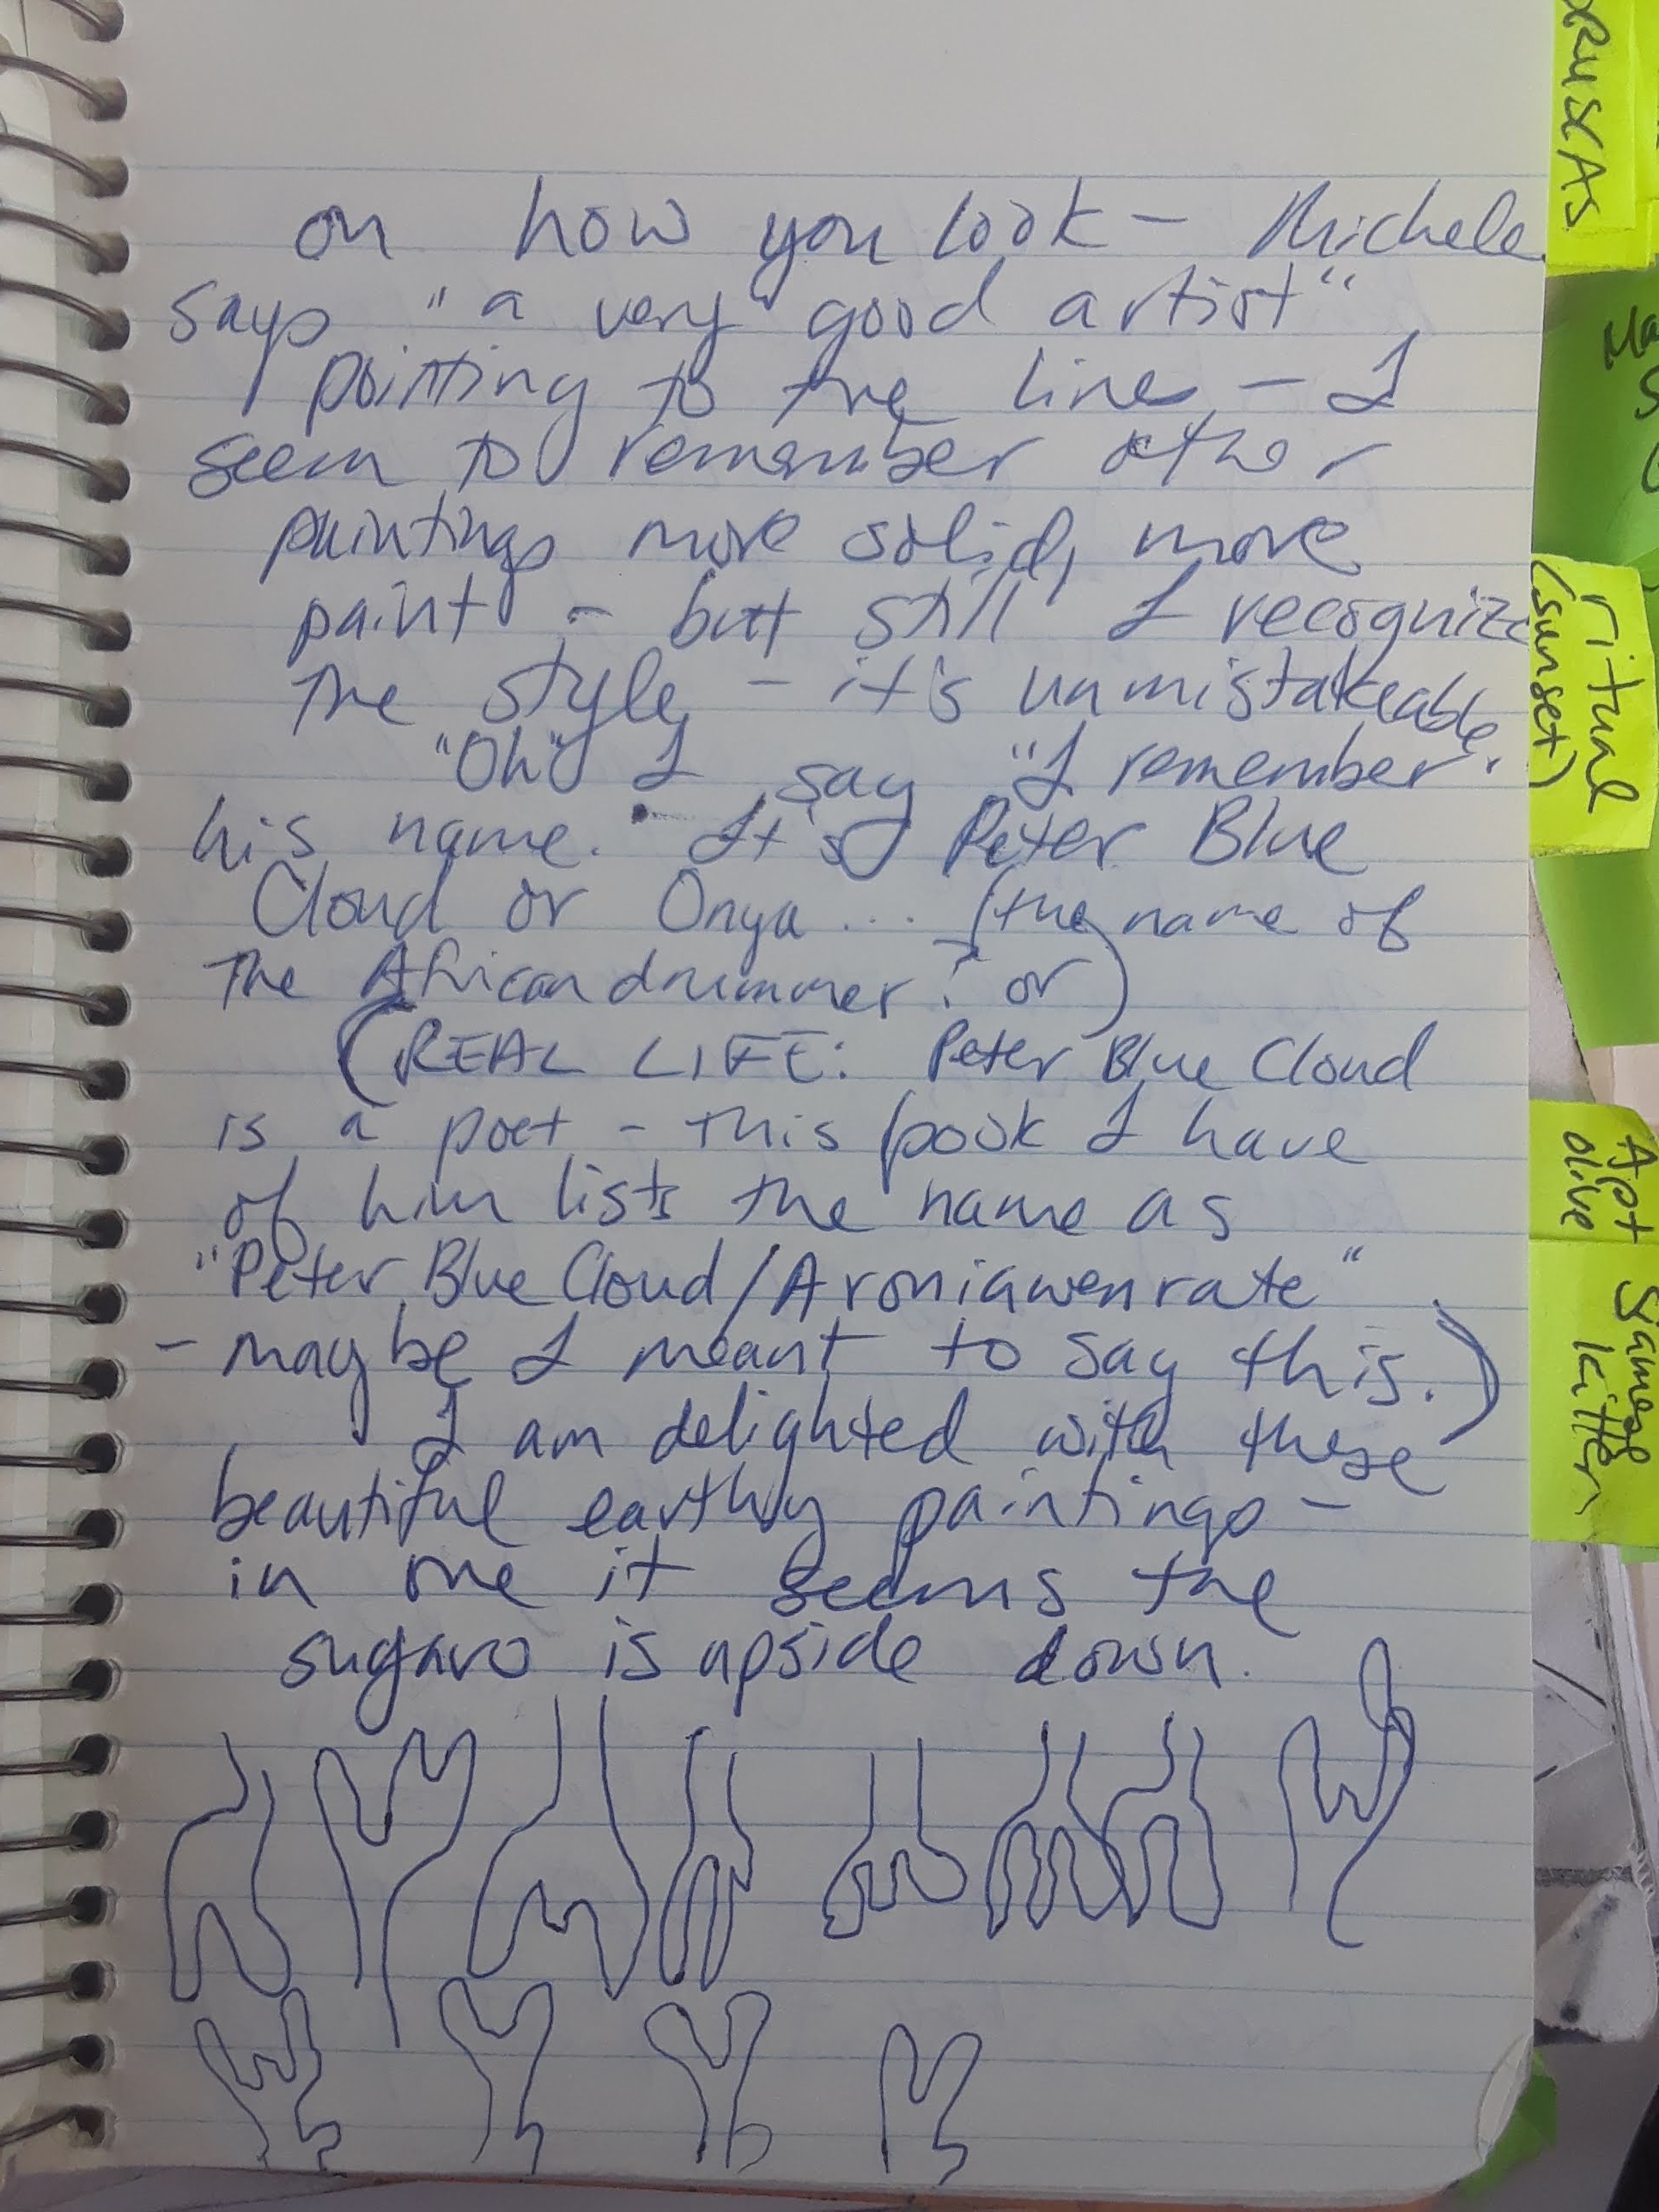 on how you look – Michele
says "a very good artist"
pointing to the line – I
seem to remember other
paintings more solid, more
paint – but still I recognize
the style – it's unmistakeable.
"Oh" I say "I remember
his name. It's Peter Blue
Cloud or Onya ... (the name of
the African drummer? or)
(REAL LIFE: Peter Blue Cloud
is a poet – this book I have
of him lists the name as
"Peter Blue Cloud/Aroniawenrate"
– maybe I meant to say this.)
I am delighted with these
beautiful earthy paintings –
in one it seems the
sugaro is upside down.
ritual
(sunset)
Apt
olive
Siamese
kitten